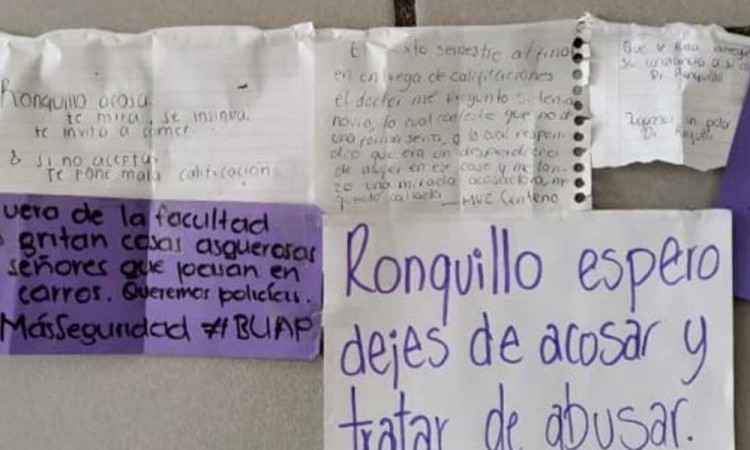 Ronquillo acosa
te mira, se insinua.
te invita a comer
& si no aceptas
Te pone mala calificación
El sexto semestre al final
en entrega de calificaciones
el doctor me pregunto si tenia
novio, lo cual conteste que no de
una forma seria, a lo cual respon-
dio que era un desperdicio
de mujer en ese caso y me lan-
zo una mirada acosadora, me
quede callada MVZ Centeno
Que le
su constancia a su
Dr. Ronquillo
un
Dr.
uera de la facultad
gritan cosas asquerosas
señores que pasan en
carros. Queremos policías.
MásSeguridad #BUAP
Ronquillo espero
dejes de acosar y
tratar de abusar.